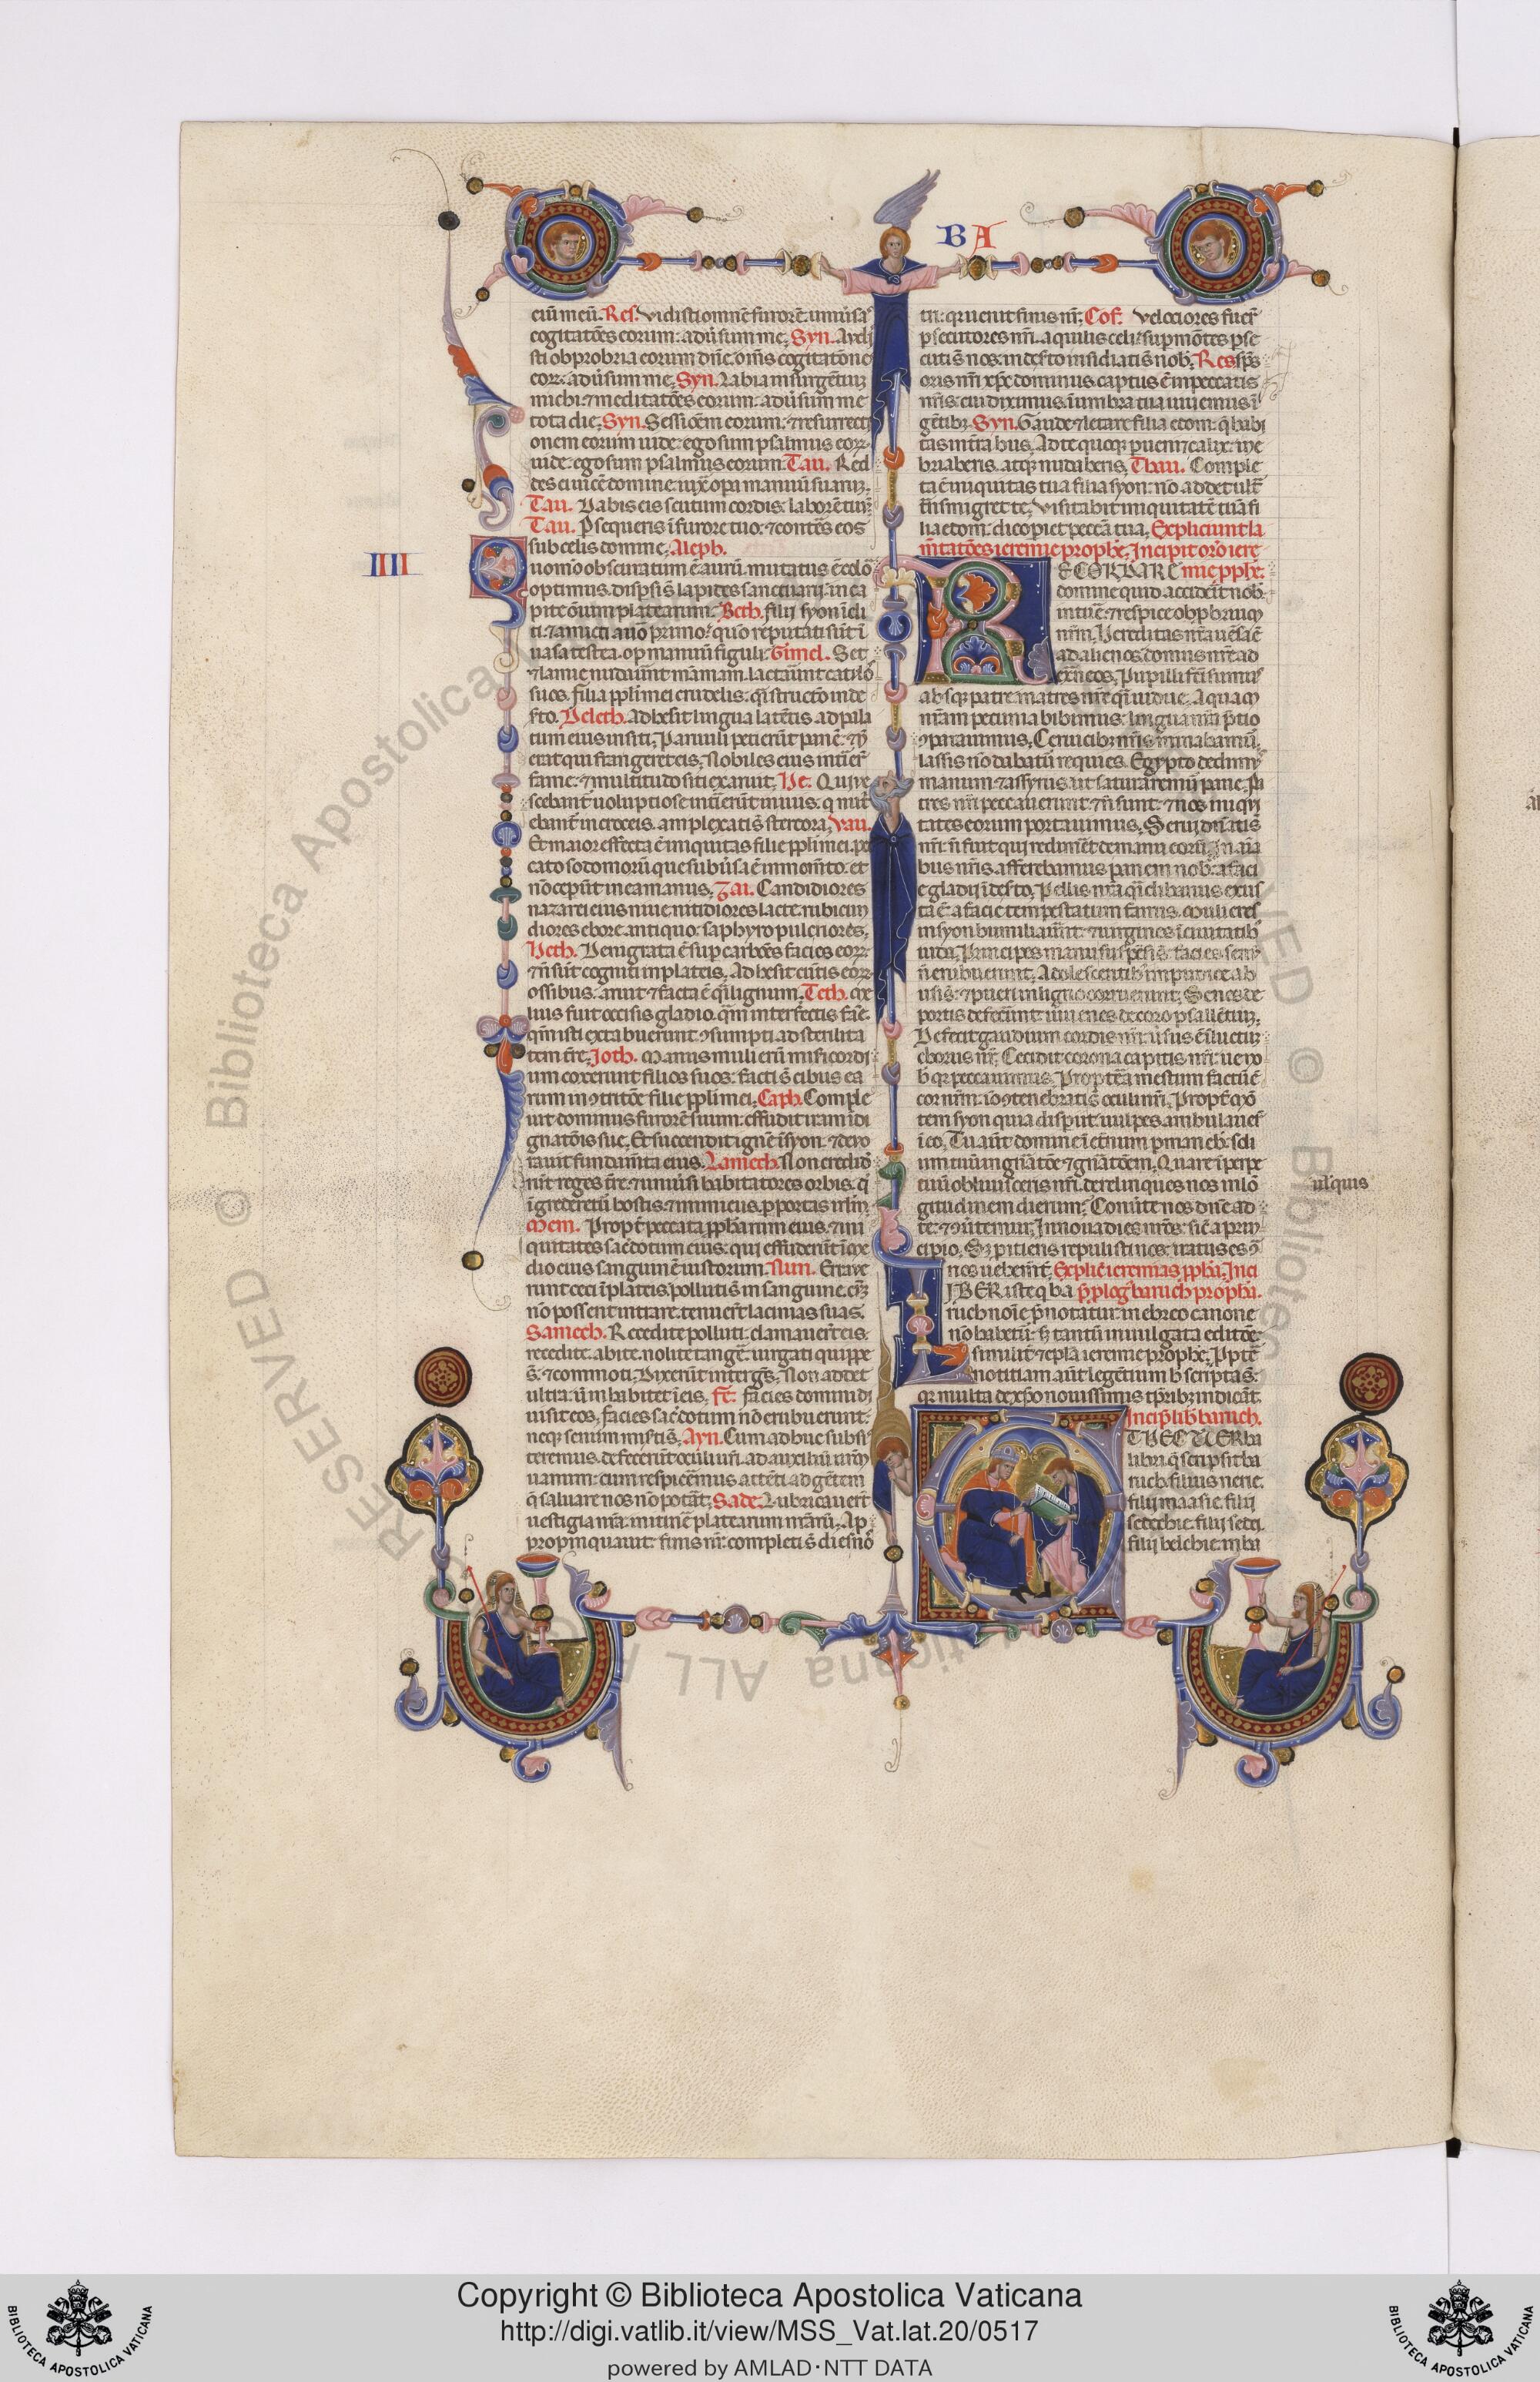 BA
eium meū. Res. Vidisti omnē furorē. uniu̇sas
cogitatōes eorum: adu̇sum me. Syn. Audi
sti obprobria eorum dn̄e. om̄s cogitatōne
eorꝝ adu̇sum me. Syn. Labia insurgētiū
michi. ⁊ meditatōes eorum. adu̇sum me
tota die. Syn. Sessiōem eorum. ⁊ resurrecti
onem eorum uide. ego sum psalmus eorꝝ.
uide. ego sum psalmus eorum. Tau. Red
des eis uicē domine. iuxͣ opa manuū suarꝝ.
Tau. Dabis eis scutum cordis. laborē tuū.
Tau. Psequeris ī furore tuo. ⁊ conteres eos
sub celis domine. Aleph.
IIII
uomō obscuratum ē aurū. mutatus ē colō
optimus. dispsi s̄ lapides sanctuarij. in ca
pite om̄ium platearum. Beth. filij syon icli
ti. ⁊ amicti auro primo. quō reputati sūt ī
uasa testea. op̄ manuū figuli. Gimel. Set
⁊ lamie nudaūnt māmam. lactaūnt catulos
suos. filia ppli mei crudelis. qi structō in de
sto. Deleth. Adhesit lingua latētis ad pala
tum eius in siti. Paruuli petierūt panē. ⁊ n̄
erat qui frangeret eis. Nobiles eius intīer̄t
fame. ⁊ multitudo siti exaruit. He. Qui ve
scebant̄ uoluptiose intīerūt in uiis. q̄ nutͥ
ebant̄ in croceis. amplexati s̄ stercora. Vau.
Et maior effecta ē iniquitas filie ppli mei. pec
cato sodomorū que subu̇sa ē in momēto. et
nō cepūt in ea manus. Zai. Candidiores
nazarei eius niue. nitidiores lacte. rubicun
diores ebore antiquo. saphyro pulcriores.
Heth. Denigrata ē sup carbōes facies eorꝝ.
⁊ n̄ sūt cogniti in plateis. Adhesit cutis eorꝝ
ossibus. aruit ⁊ facta ē qi lignum. Teth. Me
lius fuit occisis gladio. qͣm interfectis fame.
qm̄ isti extabuerunt ꝯsumpti ad sterilita
tem tr̄e. Joth. Manus mulierū misericordi
um coxerunt filios suos. facti s̄ cibus ea
rum in ꝯtritōe filie ppli mei. Caph. Comple
uit dominus furorē suum. effudit iram idi
gnatōis sue. Et succendit ignē ī syon. ⁊ deuo
rauit fundamīta eius. Lamech. Non credidē
rūt reges tr̄e. ⁊ uniu̇si habitatores orbis. q̄
īgrederetū hostis ⁊ inimicus. p portas irl̄m.
Mem. Propt̄ peccata pphārum eius. ⁊ ini
quitates sac̄dotum eius. qui effuderūt ī me
dio eius sanguinē iustorum. Nun. Erraue
runt ceci ī plateis. polluti s̄ in sanguine. cūqꝫ
nō possent intrare. tenuer̄t lacinias suas.
Samech. Recedite polluti. clamauer̄t eis.
recedite. abite. nolite tangē. iurgati quippe
s̄. ⁊ commoti. Dixerūt inter gēs. Non addet
ultra. ut inhabitet ī eis. Fe. facies domini di
uisit eos. facies sac̄dotum nō erubuerunt.
neqꝫ senum mis̄ti s̄. Ayn. Cum adhuc subsi
teremus. defecerūt oculi nr̄i. ad auxiliū nr̄m
uanum. cum respicēmus attēti ad gētem
q̄ saluare nos nō potāt. Sade. Lubricauer̄t
uestigia nr̄a. in itinē platearum nr̄arū. Ap
propinquauit. finis nr̄. completi s̄ dies nr̄i
tri. qr uenit finis nr̄. Cof. Velociores fuer̄
psecutores nr̄i. aquilis celi. sup mōtes pse
cuti s̄ nos. in desto insidiati s̄ nob. Res. sp̄s
oris nr̄i xp̄c dominus captus ē in peccatis
nr̄is. cui diximus. ī umbra tua uiuemus ī
gētibꝫ. Syn. Gaude ⁊ letare filia edom. q̄ habi
tas in tr̄a hus. Ad te quoqꝫ pueniet calix. ine
briaberis. atqꝫ nudaberis. Thau. Comple
ta ē iniquitas tua filia syon. nō addet ult̄
ut trāsmigret te. Visitabit iniquitatē tuā fi
lia edom. dicopiet peccā tua. Expliciunt la
m̄tatōes ieremie prophē. Incipit orō iere
ECORDARE mie pphē.
domine quid acciderit nob.
intuē ⁊ respice obpbrium
nr̄m. Hereditas nr̄a u̇sa ē
ad alienos. domus nr̄e ad
ext̄neos. Pupilli fc̄i sumus
absqꝫ patre. matres nr̄e qi uidue. Aquam
nr̄am pecunia bibimus. ligna nr̄a p̄tio
ꝯparauimus. Ceruicibꝫ nr̄is minabamū.
lassis nō dabatū requies. Egypto dedimus
manum ⁊ assyriis. ut saturaremū pane. Pa
tres nr̄i peccauerunt. ⁊ n̄ sunt. ⁊ nos iniqui
tates eorum portauimus. Serui dn̄ati s̄
nr̄i. n̄ fuit qui redimēt de manu eorū. In aīa
bus nr̄is afferebamus panem nob. a faci
e gladij ī desto. Pellis nr̄a qi clibanus exus
ta ē. a facie tempestatum famis. Mulieres
in syon humiliaūnt. ⁊ uirgines ī ciuitatibꝫ
iuda. Principes manu suspēsi s̄. facies senū
n̄ erubuerunt. Adolescentibꝫ impudice ab
usi s̄. ⁊ pueri in ligno corruerunt. Senes de
portis defecerūt. iuuenes de coro psallētiū.
Defecit gaudium cordis nr̄i. u̇sus ē ī luctum
chorus nr̄. Cecidit corona capitis nr̄i. ue no
b. qꝛ peccauimus. Proptea mestum factū ē
cor nr̄m. iō ꝯtenebrati s̄ oculi nr̄i. Propt̄ mō
tem syon quia disp̄iit. uulpes ambulauer̄
ī eo. Tu aūt domine ī etn̄um pmanebꝫ. soli
um tuū in gn̄atōe ⁊ gn̄atōem. Quare ī perpe
tuū obliuisceris nr̄i. derelinques nos in lō
gitudinem dierum. Conu̇te nos dn̄e ad
te. ⁊ ꝯu̇temur. Innoua dies nr̄os. sic̄ a prin
cipio. Sꝫ piciens repulisti nos. iratus es ꝯͣ
nos uehemt̄. Explic̄ ieremias pphā. Inci
IBER iste q ba p̄ ploḡ baruch prophā.
ruch noīe p̄notatur. in ebreo canone
nō habetū. sꝫ tantū in uulgata editōe.
similit̄ ⁊ epl̄a ieremie prophē. Ppt̄
notitiam aūt legētium h̄ scripta s̄.
qꝛ multa de xp̄o nouissimis tp̄ribꝫ indicāt.
Incip̄ lib̄ baruch.
T HEC UERba
libri. q̄ scripsit ba
ruch. filius nerie.
filij maasie. filij
sedechie. filij sedei.
filij helchie. in ba
ul'quis
Copyright © Biblioteca Apostolica Vaticana
http://digi.vatlib.it/view/MSS_Vat.lat.20/0517
powered by AMLAD·NTT DATA
BIBLIOTECA APOSTOLICA VATICANA
BIBLIOTECA APOSTOLICA VATICANA
© Biblioteca Apostolica Vaticana ALL RIGHTS RESERVED